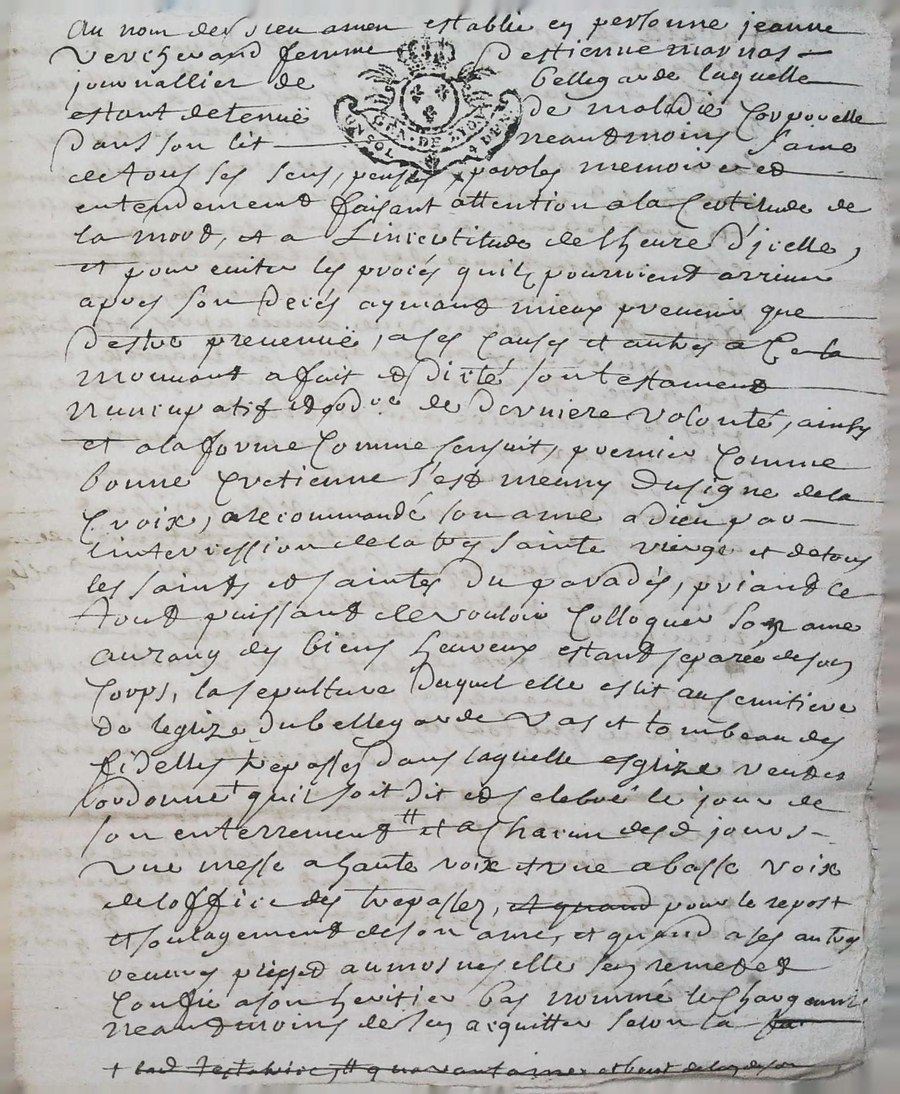 Au nom de dieu amen establie en personne jeanne
Vercherand femme destienne marnas
journallier de bellegarde laquelle
GEN. DE LYON
estant detenuë de maladie Corporelle
dans son lit neaudmoins saine
de tous ses sens, pensés, paroles memoire et
entendement faisant attention a la Certitude de
la mord, et a Lincertitude de lheure d'jcelle,
et pour eviter les procés quils pourroient arriver
apres son decés aymand mieux prevenir que
destre prevenuë, a ses Causes et autres a Cela
mouvant a fait et dicté son testament
nuncupatif et ord.re de derniere volonté, ainsy
et a la forme Comme sensuit, premier Comme
bonne Cretienne s'est muny du signe de la
Croix, a recommandé son ame a dieu par
lintercession de la tres sainte vierge et de tous
les saints et saintes du paradis, priand ce
tout puissand de vouloir Colloquer son ame
au rang des biens heureux estand separée de son
Corps, la sepulture duquel elle eslit au semitiere
de legrize du bellegarde Vas et tombeau des
fidelles trepassés dans laquelle esglize
ordonne + quil soit dit et selebré le jour de
son enterrement # et a Chacun desd jours
une messe a haute voix et une a basse voix
de loffice des trepassez, et quand pour le repost
et soulagement de son ame, et quand a ses autres
oeuvres pies et aumosnes elle sen remet et
Confie a son heritier bas nommé le Chargeant
neaudmoins de sen acquitter selon la
+ lad testatrice # quarantaine et bout de lan de son